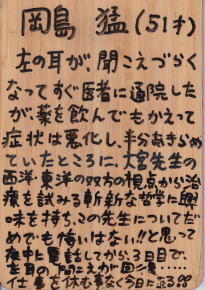 岡島 猛(51才)
左の耳が聞こえづらく
なってすぐ医者に通院した
が薬を飲んでもかえって
症状は悪化し、半分あきらめ
ていたところに、大宮先生の
西洋・東洋の双方の視点から治
療を試みる斬新な哲学に興
味を持ち、この先生についてだ
めでも悔いはない!!と思って
夜中に電話してから3日目で、
左耳の聞こえが回
仕事を休む事なく今日に至る